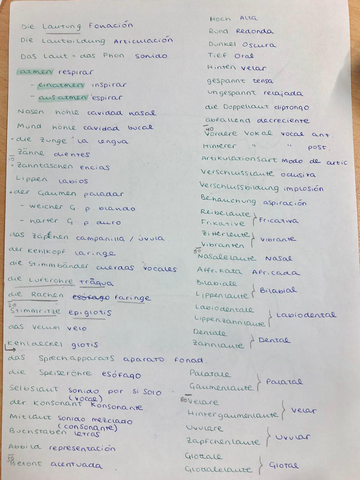 Die Lautung Fonación
Die Lautbildung Articulación
Das Laut · das Phon sonido
atmen respirar
- einatmen inspirar
- ausatmen espirar
Nasen höhle cavidad nasal
Mund höhle cavidad bocal
· die Zunge la lengua
Zähne dientes
· Zahntaschen encías
Lippen labios
· der Gaumen paladar
- weicher G. p blando
- harter G. p duro
das Zäpfchen campanilla / úvula
der Kehlkopf laringe
die Stimmbänder cuerdas vocales
die Luftröhre tráquea
die Rachen esófago faringe
Stimmritze epiglotis
das Velum velo
Kehldeckel glotis
das Sprechapparats aparato fonad
die Speiseröhre esófago
Selbstlaut sonido por si solo
(vocal)
der Konsonant konsonante
Mitlaut sonido mezclado
(consonante)
Buchstaben letras
Abbild representación
Betont acentuada
Hoch Alta
Rund Redonda
Dunkel Oscura
Tief Oral
Hinten velar
gespannt tensa
ungespannt relajada
die Doppellaut diptongo
abfallend decreciente
40
Vordere vokal vocal ant.
Hinterer " " post.
Artikulationsart modo de artic
Verschlusslaute oclusita
Verschlussbildung implosión
Behauchung aspiración
Reibelaute
Frikative } Fricativa
Zitterlaute
Vibranten } Vibrante
Nasallaute Nasal
Affrikata Africada
Bilabiale
Lippenlaute } Bilabial
Labiodentale
Lippenzahnlaute } Labiodental
Dentale
Zahnlaute } Dental
Palatale
Gaumenlaute } Palatal
Velare
Hintergaumenlaute } Velar
Uvulare
Zäpfchenlaute } Uvular
Glottale
Glottallaute } Glotal